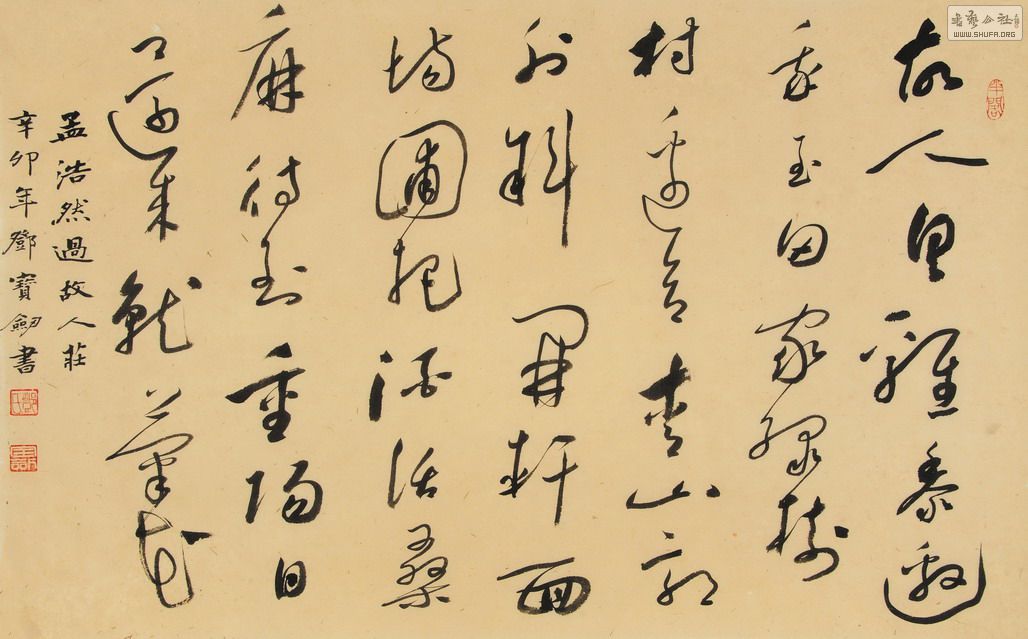 故人具雞黍邀
我至田家綠樹
村邊合青山郭
外斜開軒面
場圃把酒話桑
麻待到重陽日
還來就菊花
孟浩然過故人莊
辛卯年鄧寶劍書
書藝公社
WWW.SHUFA.ORG